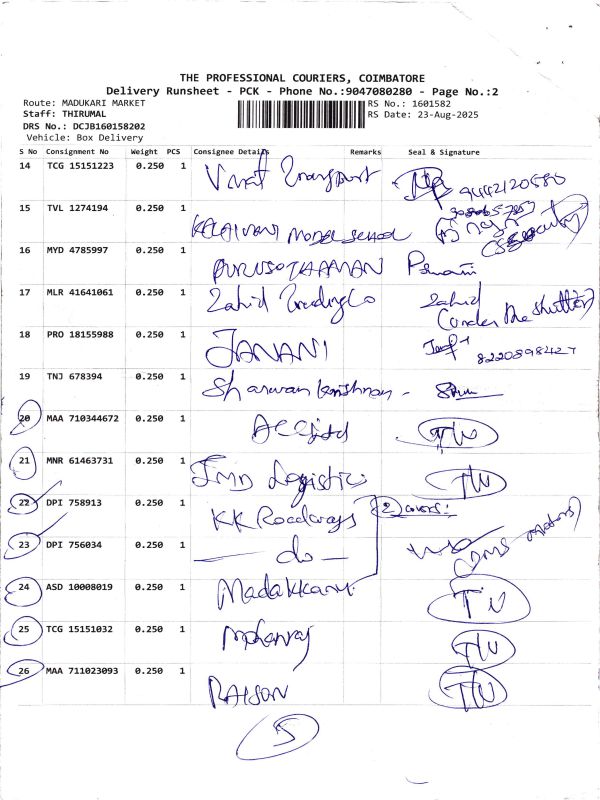 THE PROFESSIONAL COURIERS, COIMBATORE
Delivery Runsheet - PCK - Phone No.:9047080280 - Page No.:2
Route: MADUKARI MARKET
RS No.: 1601582
Staff: THIRUMAL
RS Date: 23-Aug-2025
DRS No.: DCJB160158202
Vehicle: Box Delivery
S No Consignment No Weight PCS Consignee Details Remarks Seal & Signature
14 TCG 15151223 0.250 1 Transport 9442120580
15 TVL 1274194 0.250 1 KALAIVANI Model School
16 MYD 4785997 0.250 1 PURUSOTHAMAN
17 MLR 41641061 0.250 1 Zahid Trading Co Zahid
(under the shutter)
18 PRO 18155988 1 0.250 JANANI
8220898427
19 TNJ 678394 0.250 1 Sharwan Krishnan -
20 MAA 710344672 0.250 1
21 MNR 61463731 0.250 1 Logistic
22 DPI 758913 0.250 1 KK Roadways 2 covers:
23 DPI 756034 0.250 1 — do —
24 ASD 10008019 0.250 1 Madakkani
25 TCG 15151032 0.250 1 Mohanraj
26 MAA 711023093 0.250 1 RAISON
5